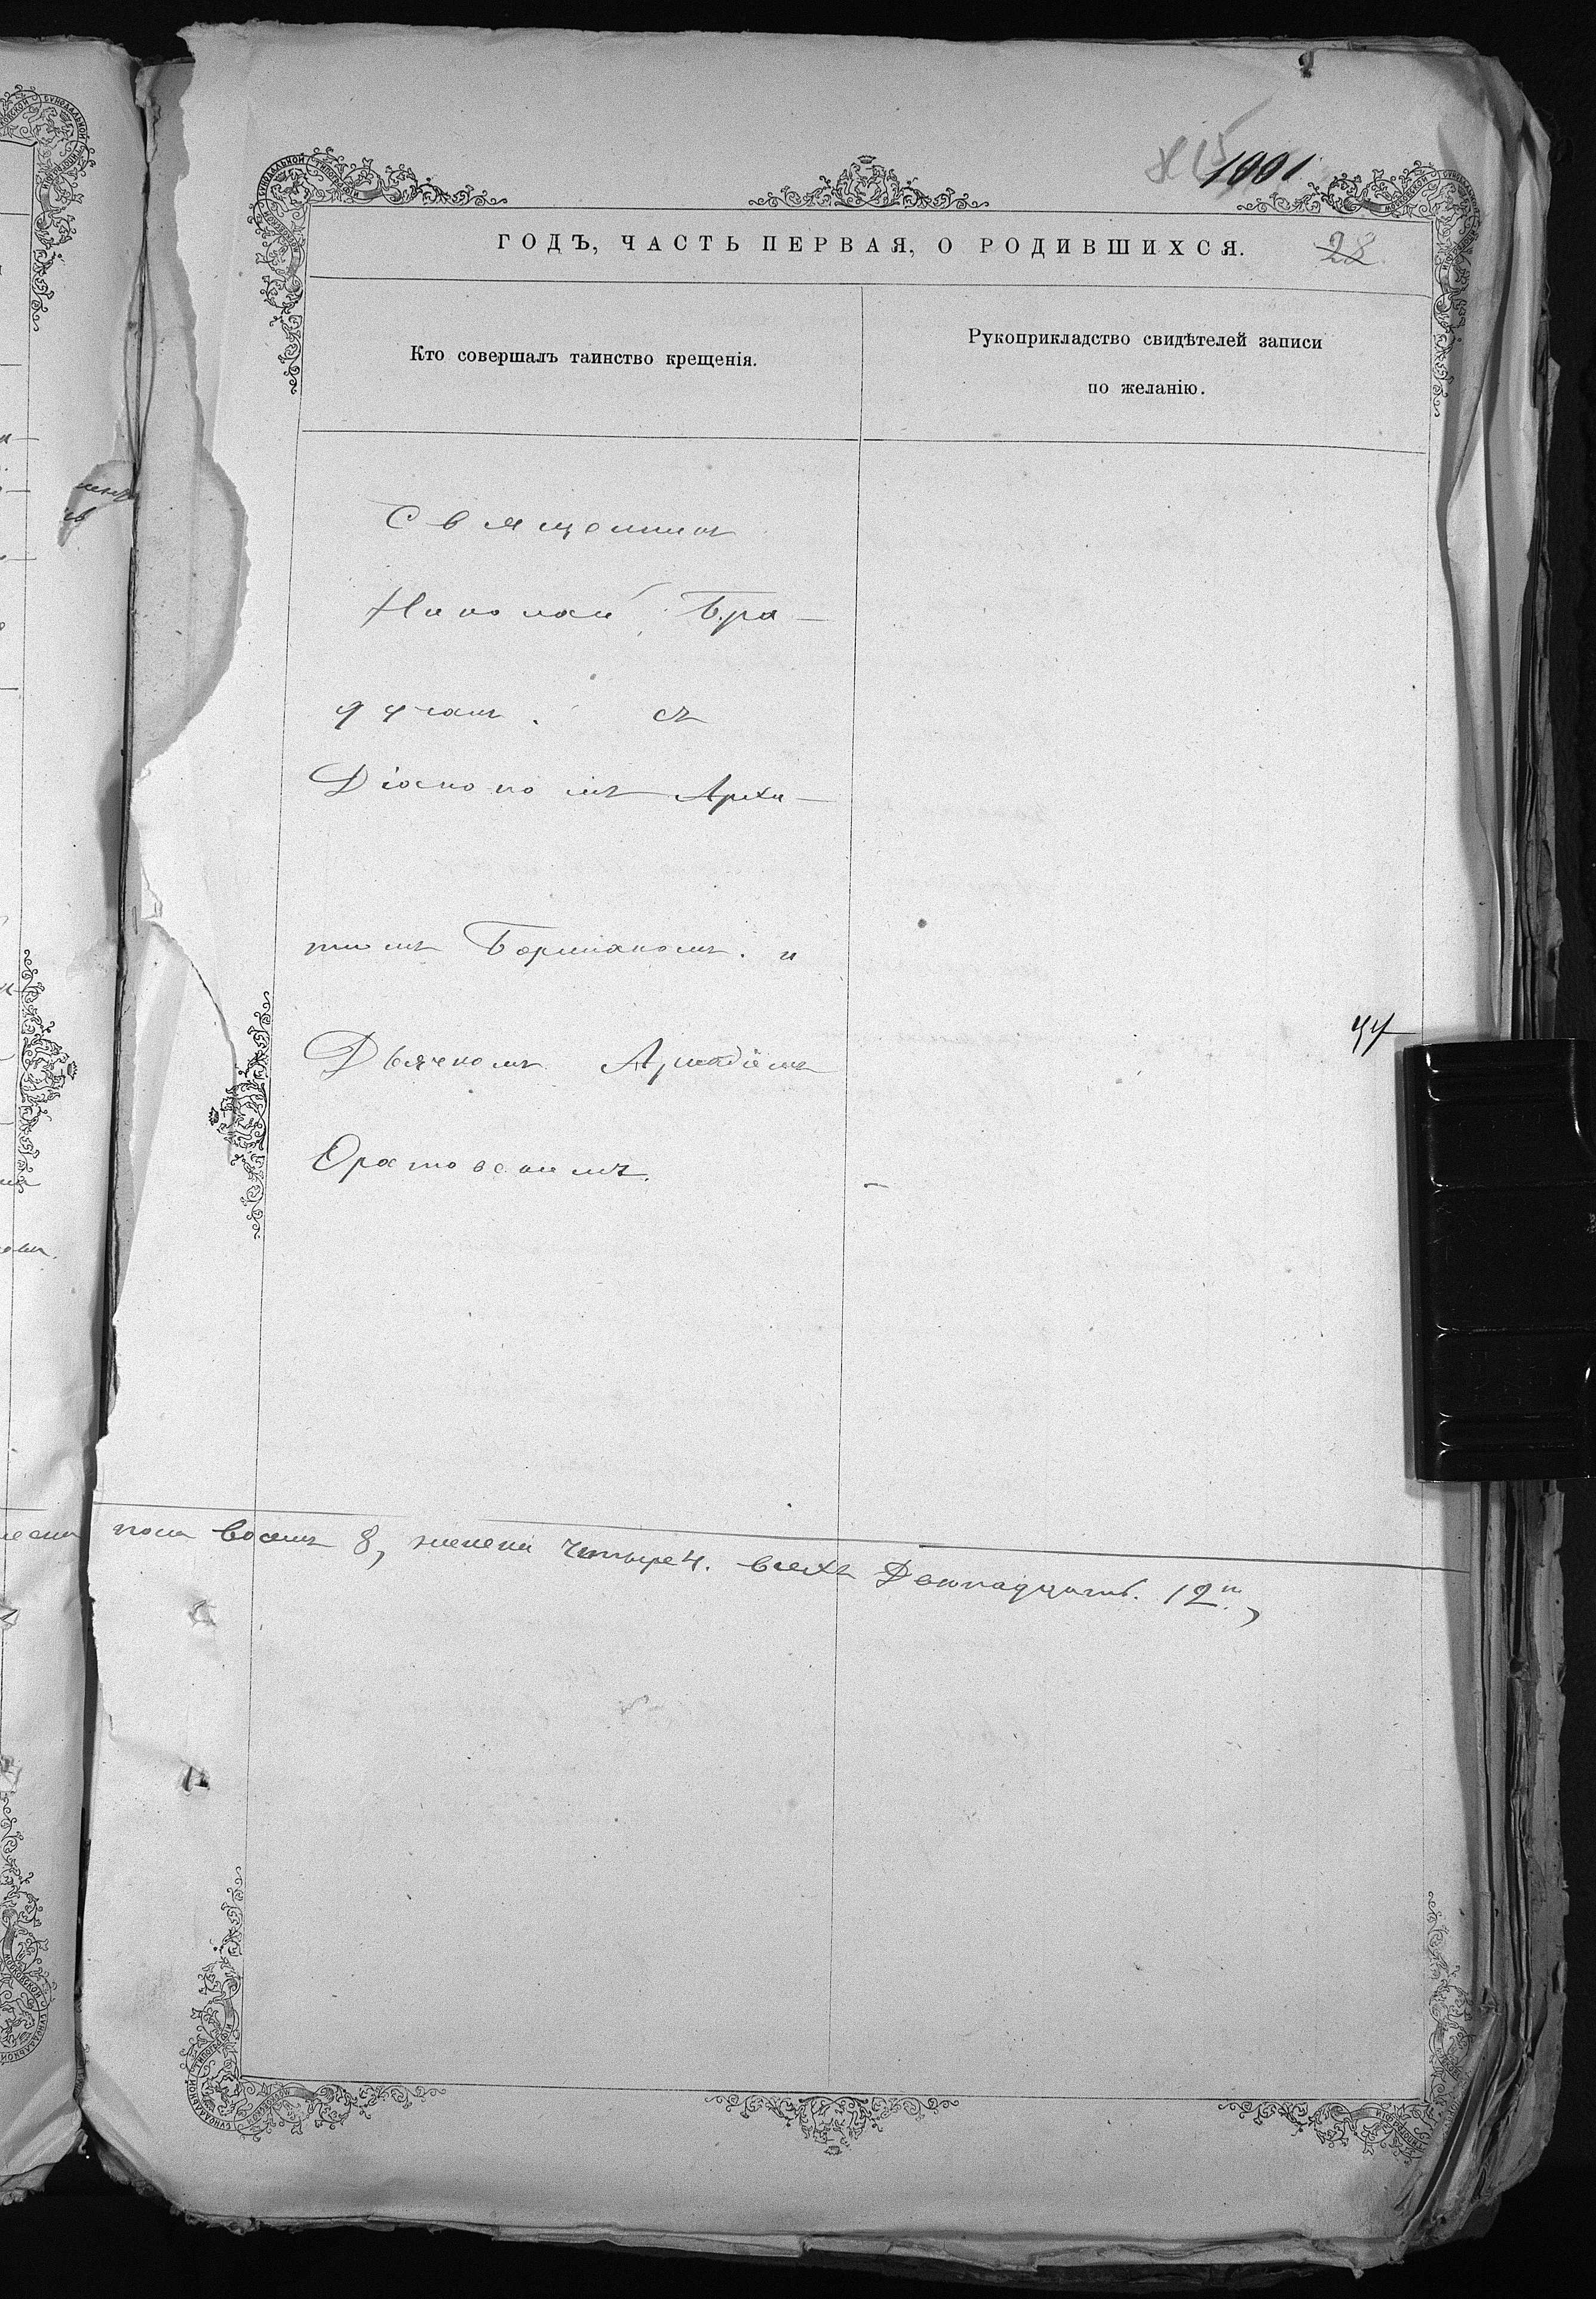 1001
ГОДЪ, ЧАСТЬ ПЕРВАЯ, О РОДИВШИХСЯ.
28
Кто совершалъ таинство крещенія.
Рукоприкладство свидѣтелей записи
по желанію.
Священникъ
Николай Бра-
съ
Діакономъ Архи-
помъ Борманомъ. и
Дьячкомъ Аркадіемъ
Оратовскимъ.
пола восемь 8, женска четыре 4. всехъ Двенадцать. 12.,